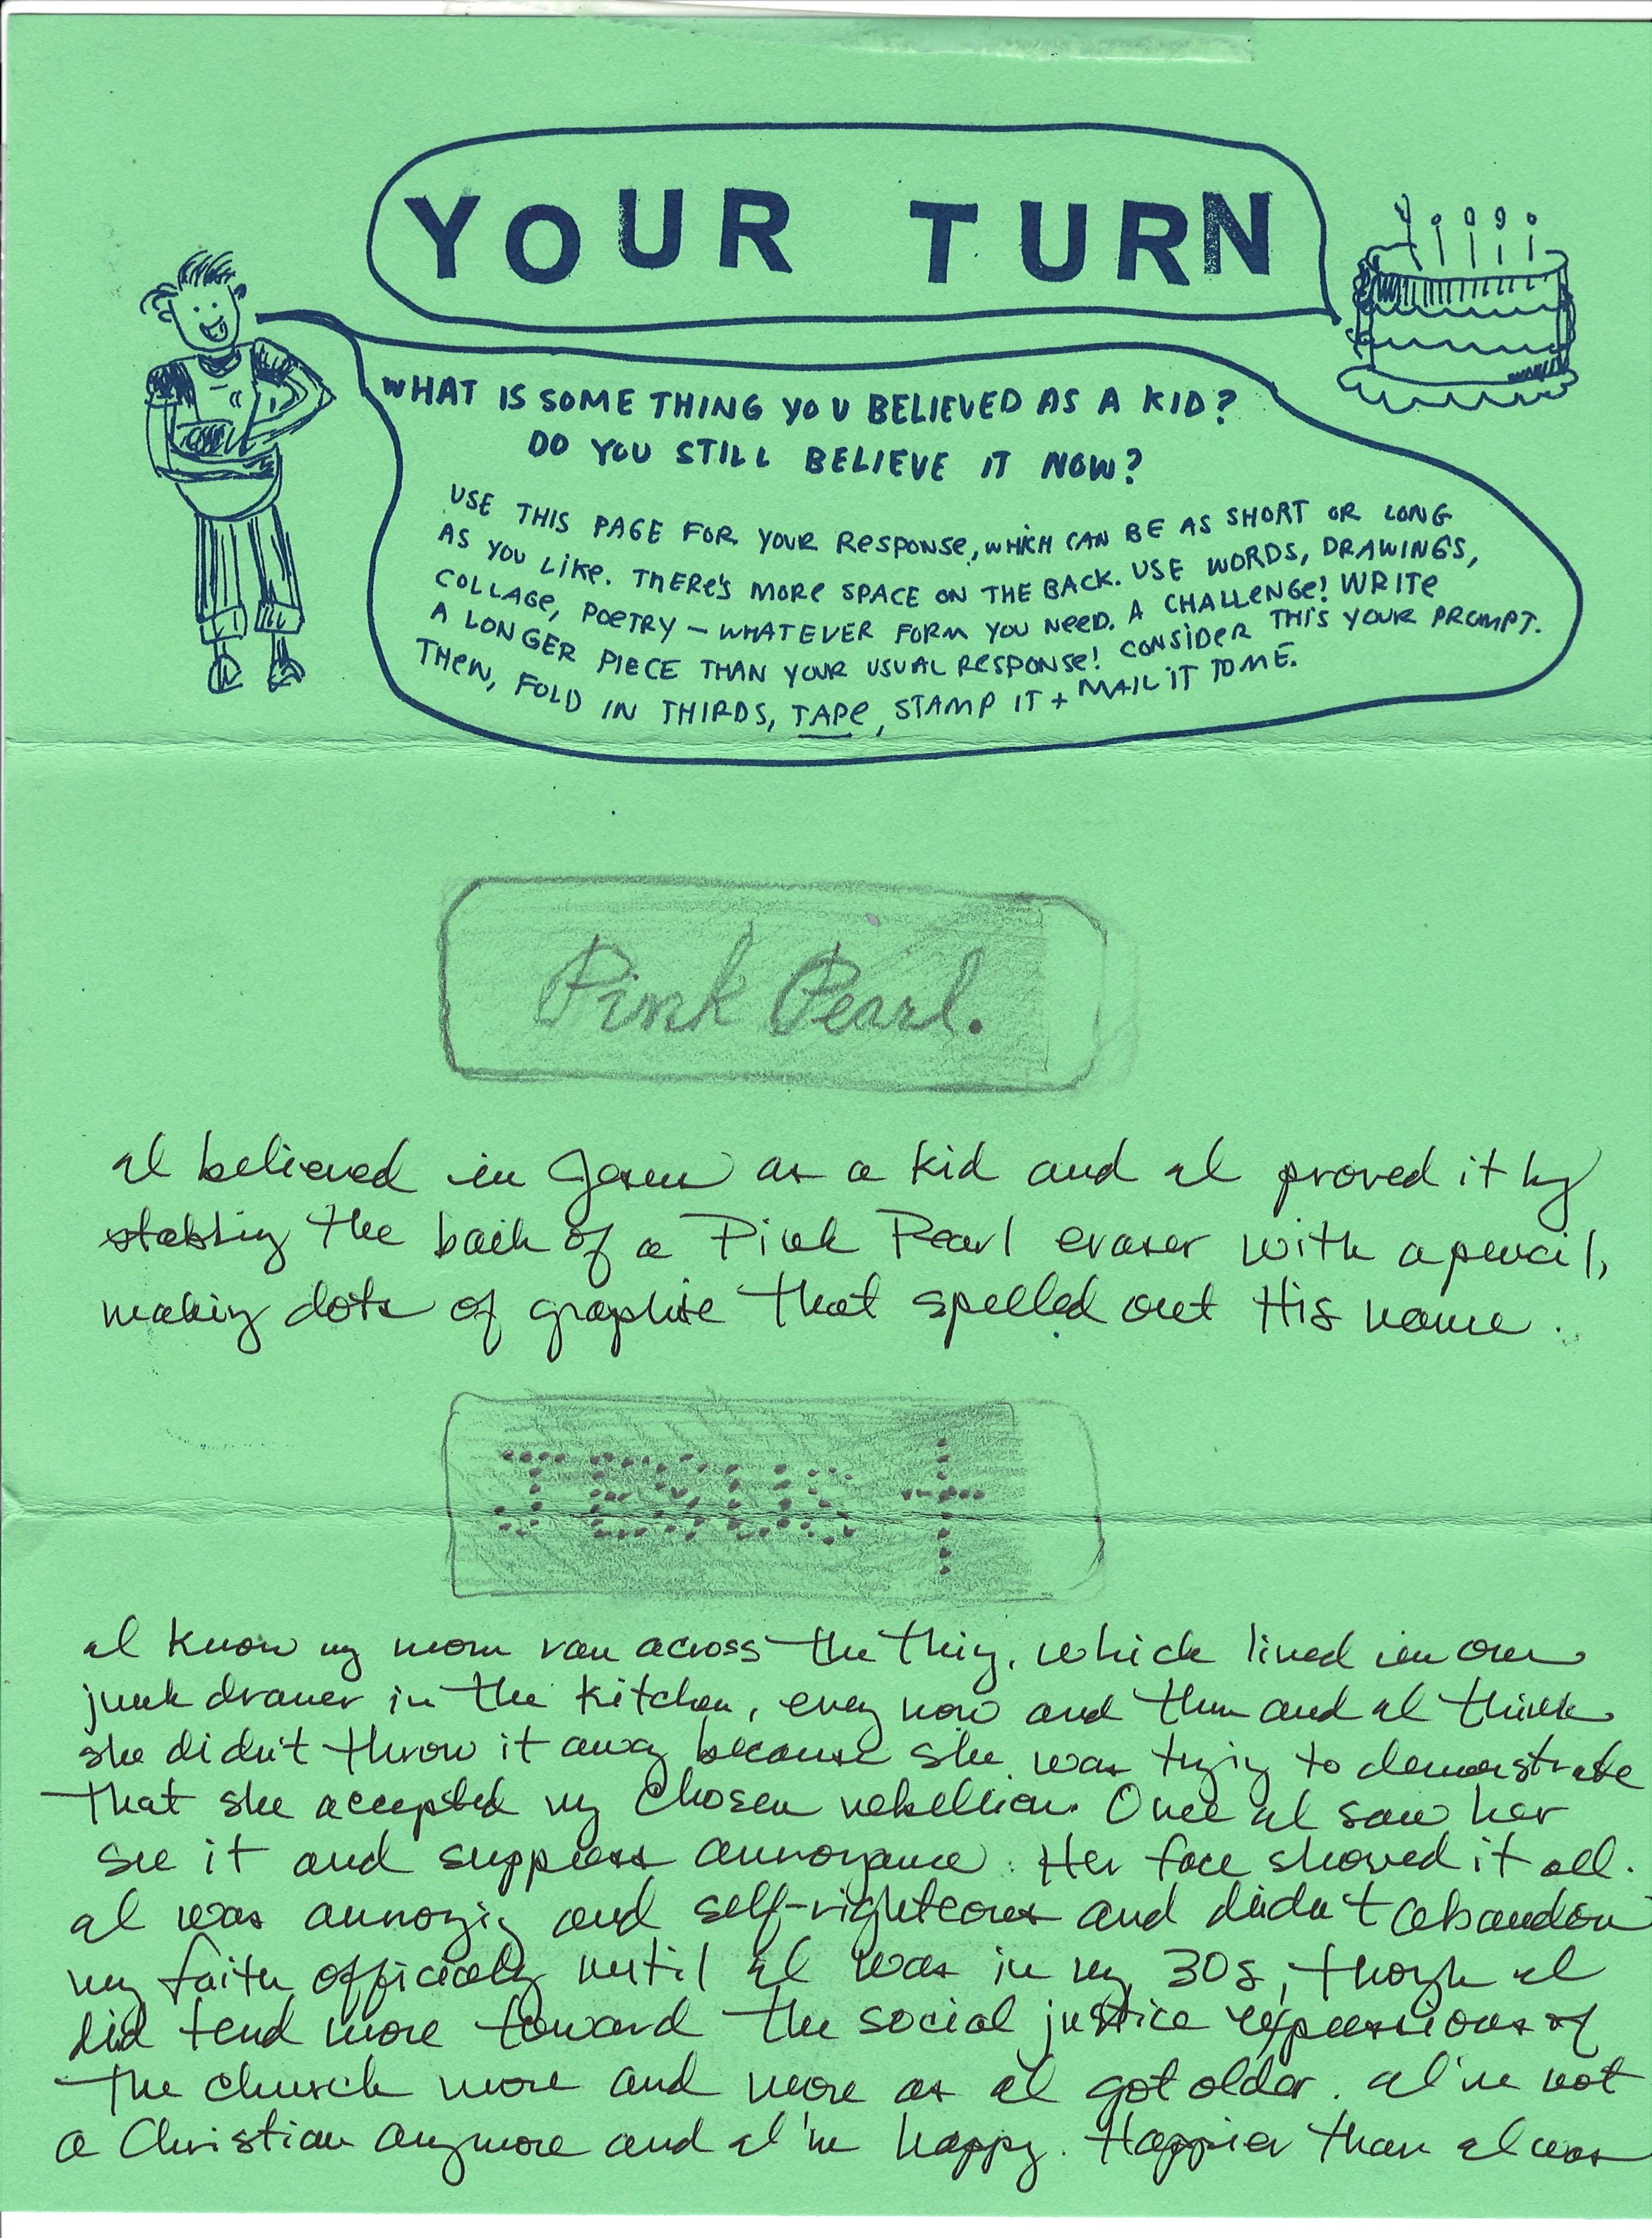 YOUR TURN
WHAT IS SOME THING YOU BELIEVED AS A KID?
DO YOU STILL BELIEVE IT NOW?
USE THIS PAGE FOR YOUR RESPONSE, WHICH CAN BE AS SHORT OR LONG
AS YOU LIKE. THERE'S MORE SPACE ON THE BACK. USE WORDS, DRAWINGS,
COLLAGE, POETRY – WHATEVER FORM YOU NEED. A CHALLENGE! WRITE
A LONGER PIECE THAN YOUR USUAL RESPONSE! CONSIDER THIS YOUR PROMPT.
THEN, FOLD IN THIRDS, TAPE, STAMP IT + MAIL IT TO ME.
Pink Pearl.
I believed in Jesus as a kid and I proved it by
stabbing the back of a Pink Pearl eraser with a pencil,
making dots of graphite that spelled out His name.
JESUS
I know my mom ran across the thing, which lived in our
junk drawer in the kitchen, every now and then and I think
she didn't throw it away because she was trying to demonstrate
that she accepted my chosen rebellion. Once I saw her
see it and suppress annoyance. Her face showed it all.
I was annoying and self-righteous and didn't abandon
my faith officially until I was in my 30s, though I
did tend more toward the social justice expressions of
the church more and more as I got older. I'm not
a Christian anymore and I'm happy. Happier than I was